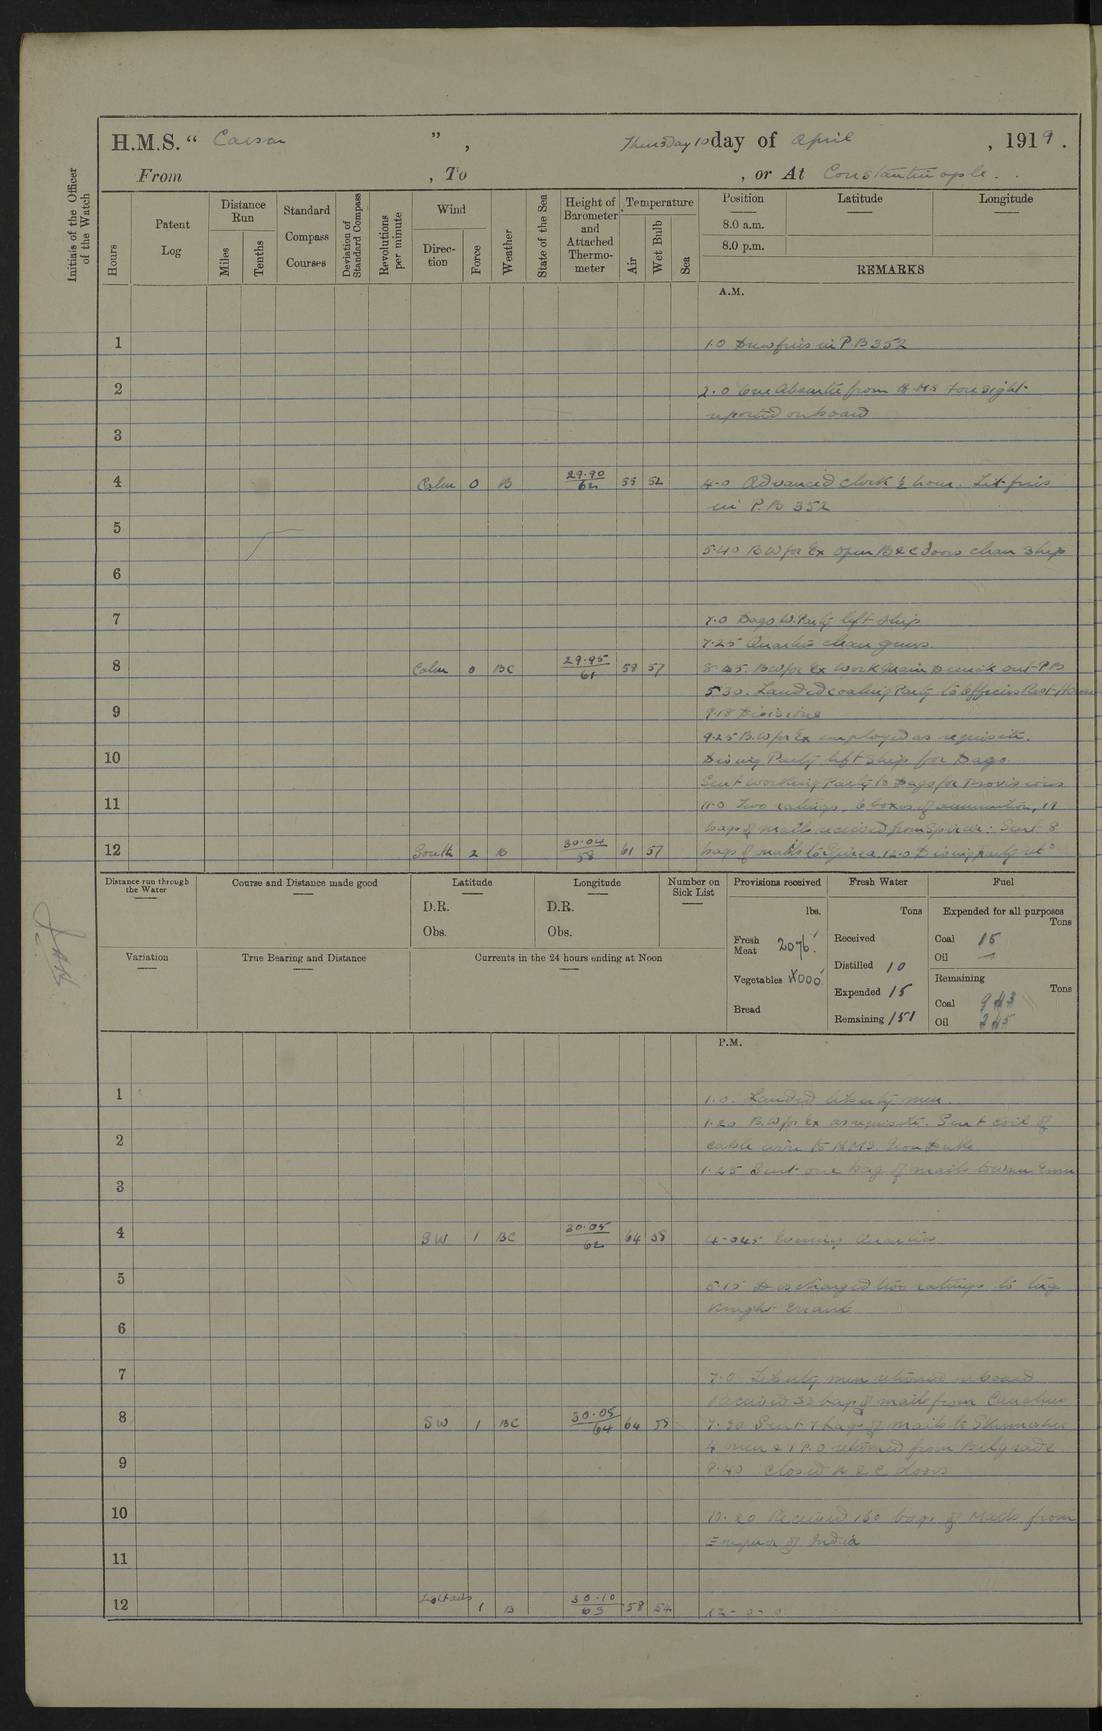 H.M.S. “ Caesar ” , Thursday 10 day of April , 1919 .
From , To , or At Constantinople .
Initials of the Officer of the Watch
Hours
Patent Log
Distance Run
Miles
Tenths
Standard Compass Courses
Deviation of Standard Compass
Revolutions per minute
Wind
Direction
Force
Weather
State of the Sea
Height of Barometer and Attached Thermometer
Temperature
Air
Wet Bulb
Sea
Position Latitude Longitude
8.0 a.m.
8.0 p.m.
REMARKS
A.M.
1 1.0 Drew fires in P B 352
2 2.0 One Absentee from H.M.S Foresight
reported onboard
3
4 Calm 0 B 29.90 62 55 52 4.0 Advanced clock ½ hour. Lit fires
in P.B 352
5
5.40 B W for Ex open B & C doors clean ship
6
7 7.0 Dago W. Party left ship
7.25 Quarters clean guns
8 Calm 0 BC 29.95 61 58 57 8.25 BW for Ex Work Main Derrick out P.B
5.30. Landed coaling Party to Officers Rest House
9 9.15 Divisions
9.25 B.W for Ex employed as requisite.
10 Diving Party left Ship for Dago
Sent working Party to Dago for Provisions
11 11.0 Two ratings, 6 boxes of ammunition, 17
bags of mails received from Spirea: Sent 8
12 South 2 B 30.04 58 61 57 bags of mails to Spirea. 12.0 Diving party retd
Distance run through the Water
Course and Distance made good
Latitude
D.R.
Obs.
Longitude
D.R.
Obs.
Number on Sick List
Provisions received
lbs.
Fresh Meat 2076
Vegetables
Bread
Fresh Water
Tons
Received
Distilled 10
Expended 15
Remaining 151
Fuel
Expended for all purposes
Tons
Coal 15
Oil —
Remaining
Tons
Coal 943
Oil 245
Variation
True Bearing and Distance
Currents in the 24 hours ending at Noon
P.M.
1 1.0. Landed liberty men.
1.20 B.W for Ex as requisite. Sent coil of
2 cable wire to H.M.S. Iron Duke
1.45 Sent one bag of mails
3
4 SW 1 BC 30.05 62 64 58 Evening Quarters
5 5.15 Discharged two ratings to tug
Knight Errant
6
7 7.0 Liberty men returned onboard
Received 33 bags of mails from
8 SW 1 BC 30.05 64 64 58 7.30 Sent 7 bags of mails to
4 men & 1 P.O returned from Belgrade
9 9.40 closed B & C doors
10 10.20 Received 150 bags of Mails from
Emperor of India
11
12 Lt airs 1 B 30.10 63 58 54